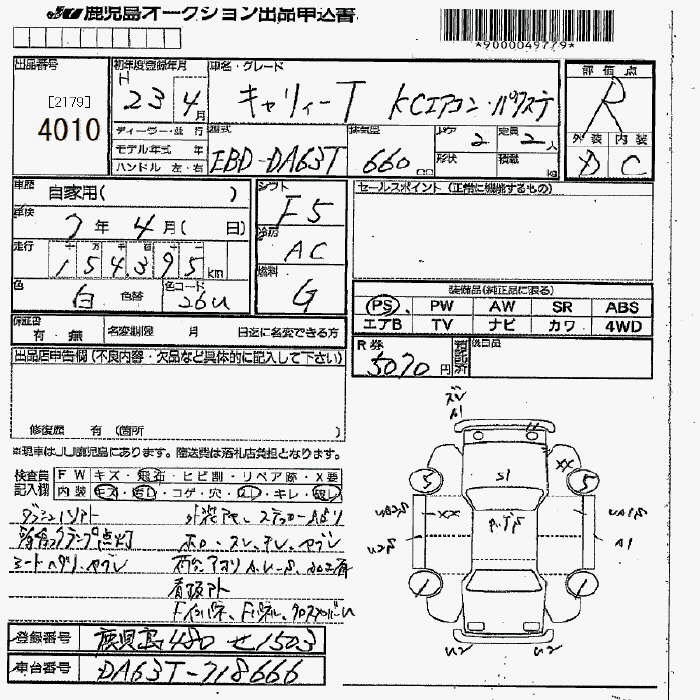 JU 鹿児島オークション出品申込書
*9000049779*
出品番号
[2179]
4010
初年度登録年月
H 23 4月
車名・グレード
キャリィーT KCエアコン・パワステ
評価点
R
外装 内装
D C
ディーラー・並行
モデル年式 年
ハンドル 左・右
型式
EBD-DA63T
排気量
660 cc
ドア 2
定員 2人
形状
積載 kg
車歴
自家用( )
車検
7年 4月( 日)
走行
154395 km
色
白 色替
色コード
26U
シフト
F5
冷房
AC
燃料
G
セールスポイント (正常に機能するもの)
装備品(純正品に限る)
PS PW AW SR ABS
エアB TV ナビ カワ 4WD
保証書
有・無
名変期限 月 日迄に名変できる方
R券
5070円
預託済
後日品
出品店申告欄(不良内容・欠品など具体的に記入して下さい)
修復歴 有 (箇所 )
※現車はJU鹿児島にあります。陸送費は落札店負担となります。
検査員
記入欄
FW キズ・飛石・ヒビ割・リペア跡・X要
内装 キズ・汚レ・コゲ・穴・凹レ・キレ・破レ
シートヘタリ、ヤブレ
看板アト
登録番号
鹿児島480 せ1503
車台番号
DA63T-718666
ズレ
A1
XX
S1
5
5
XX
A1
1
1
U2
U2